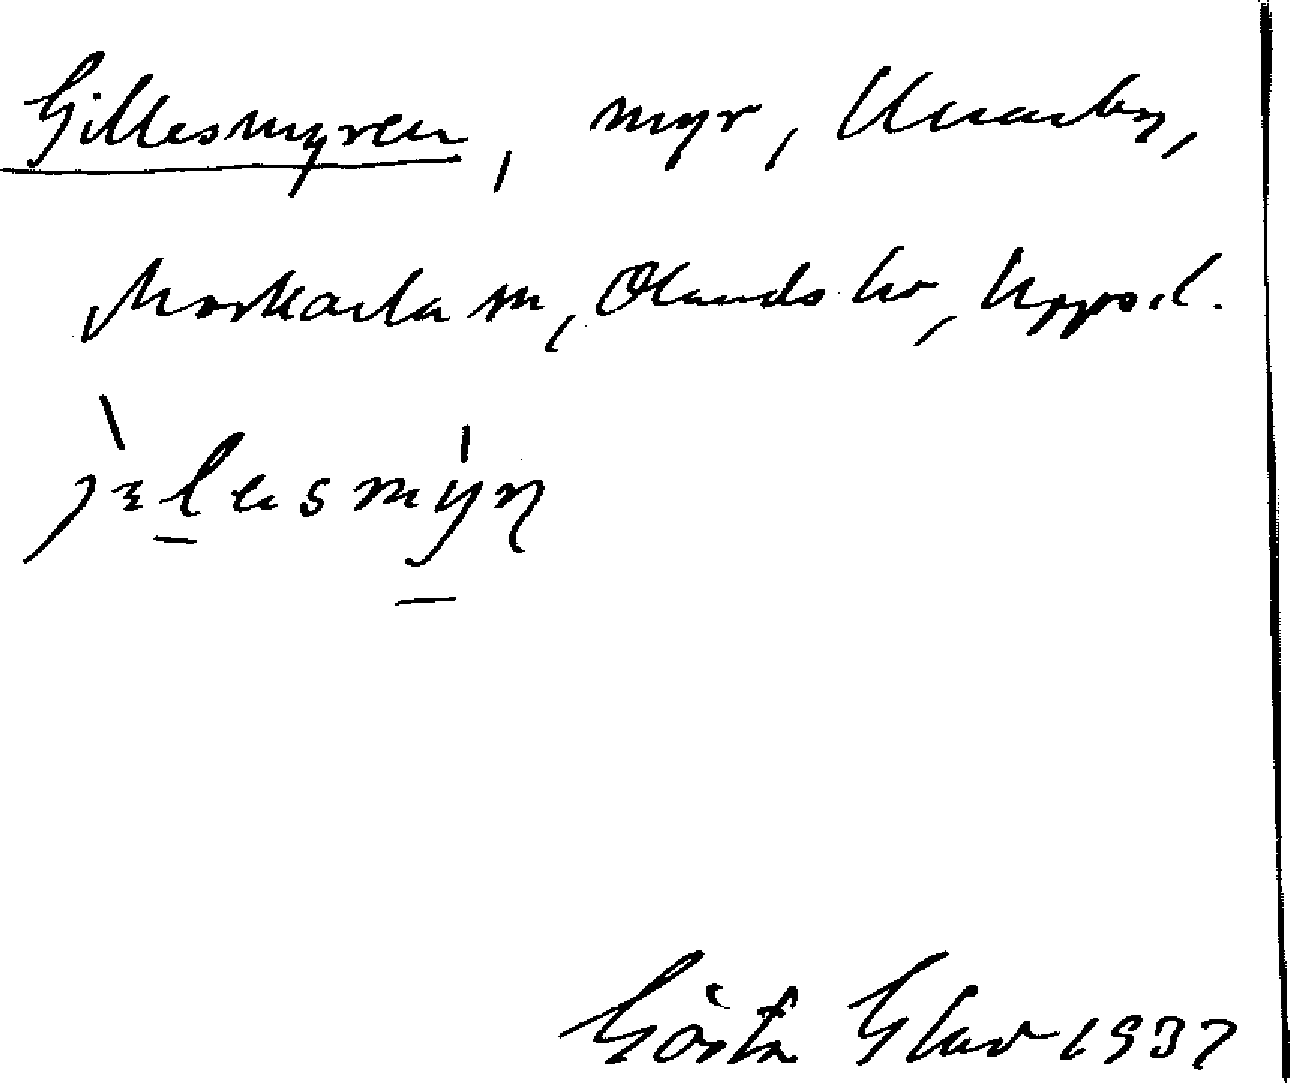 Gillesmyren, myr, Unarby,
Morkarla sn, Olands hd, Uppsl.
Gösta Glav 1937